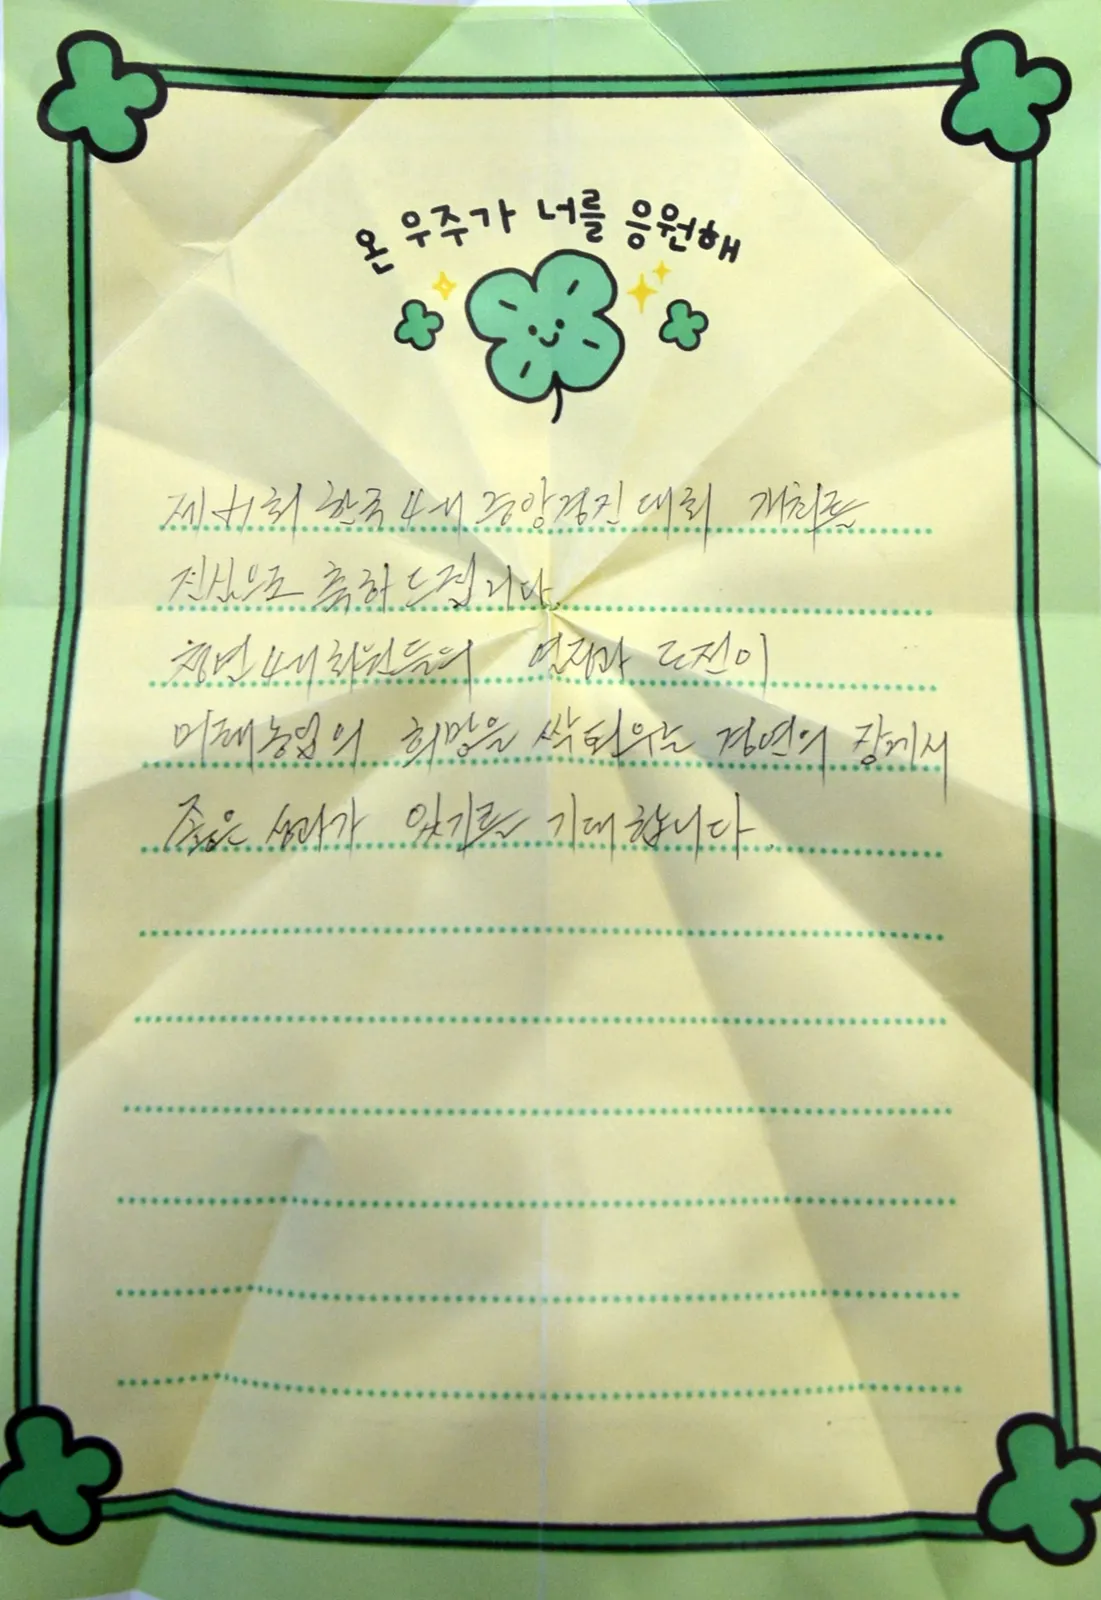 온 우주가 너를 응원해
한국 4-H 중앙경진대회 개최를
진심으로 축하드립니다.
청년 4-H 회원들의 열정과 도전이
미래농업의 희망을 싹 틔우는 경연의 장에서
좋은 성과가 있기를 기대합니다.